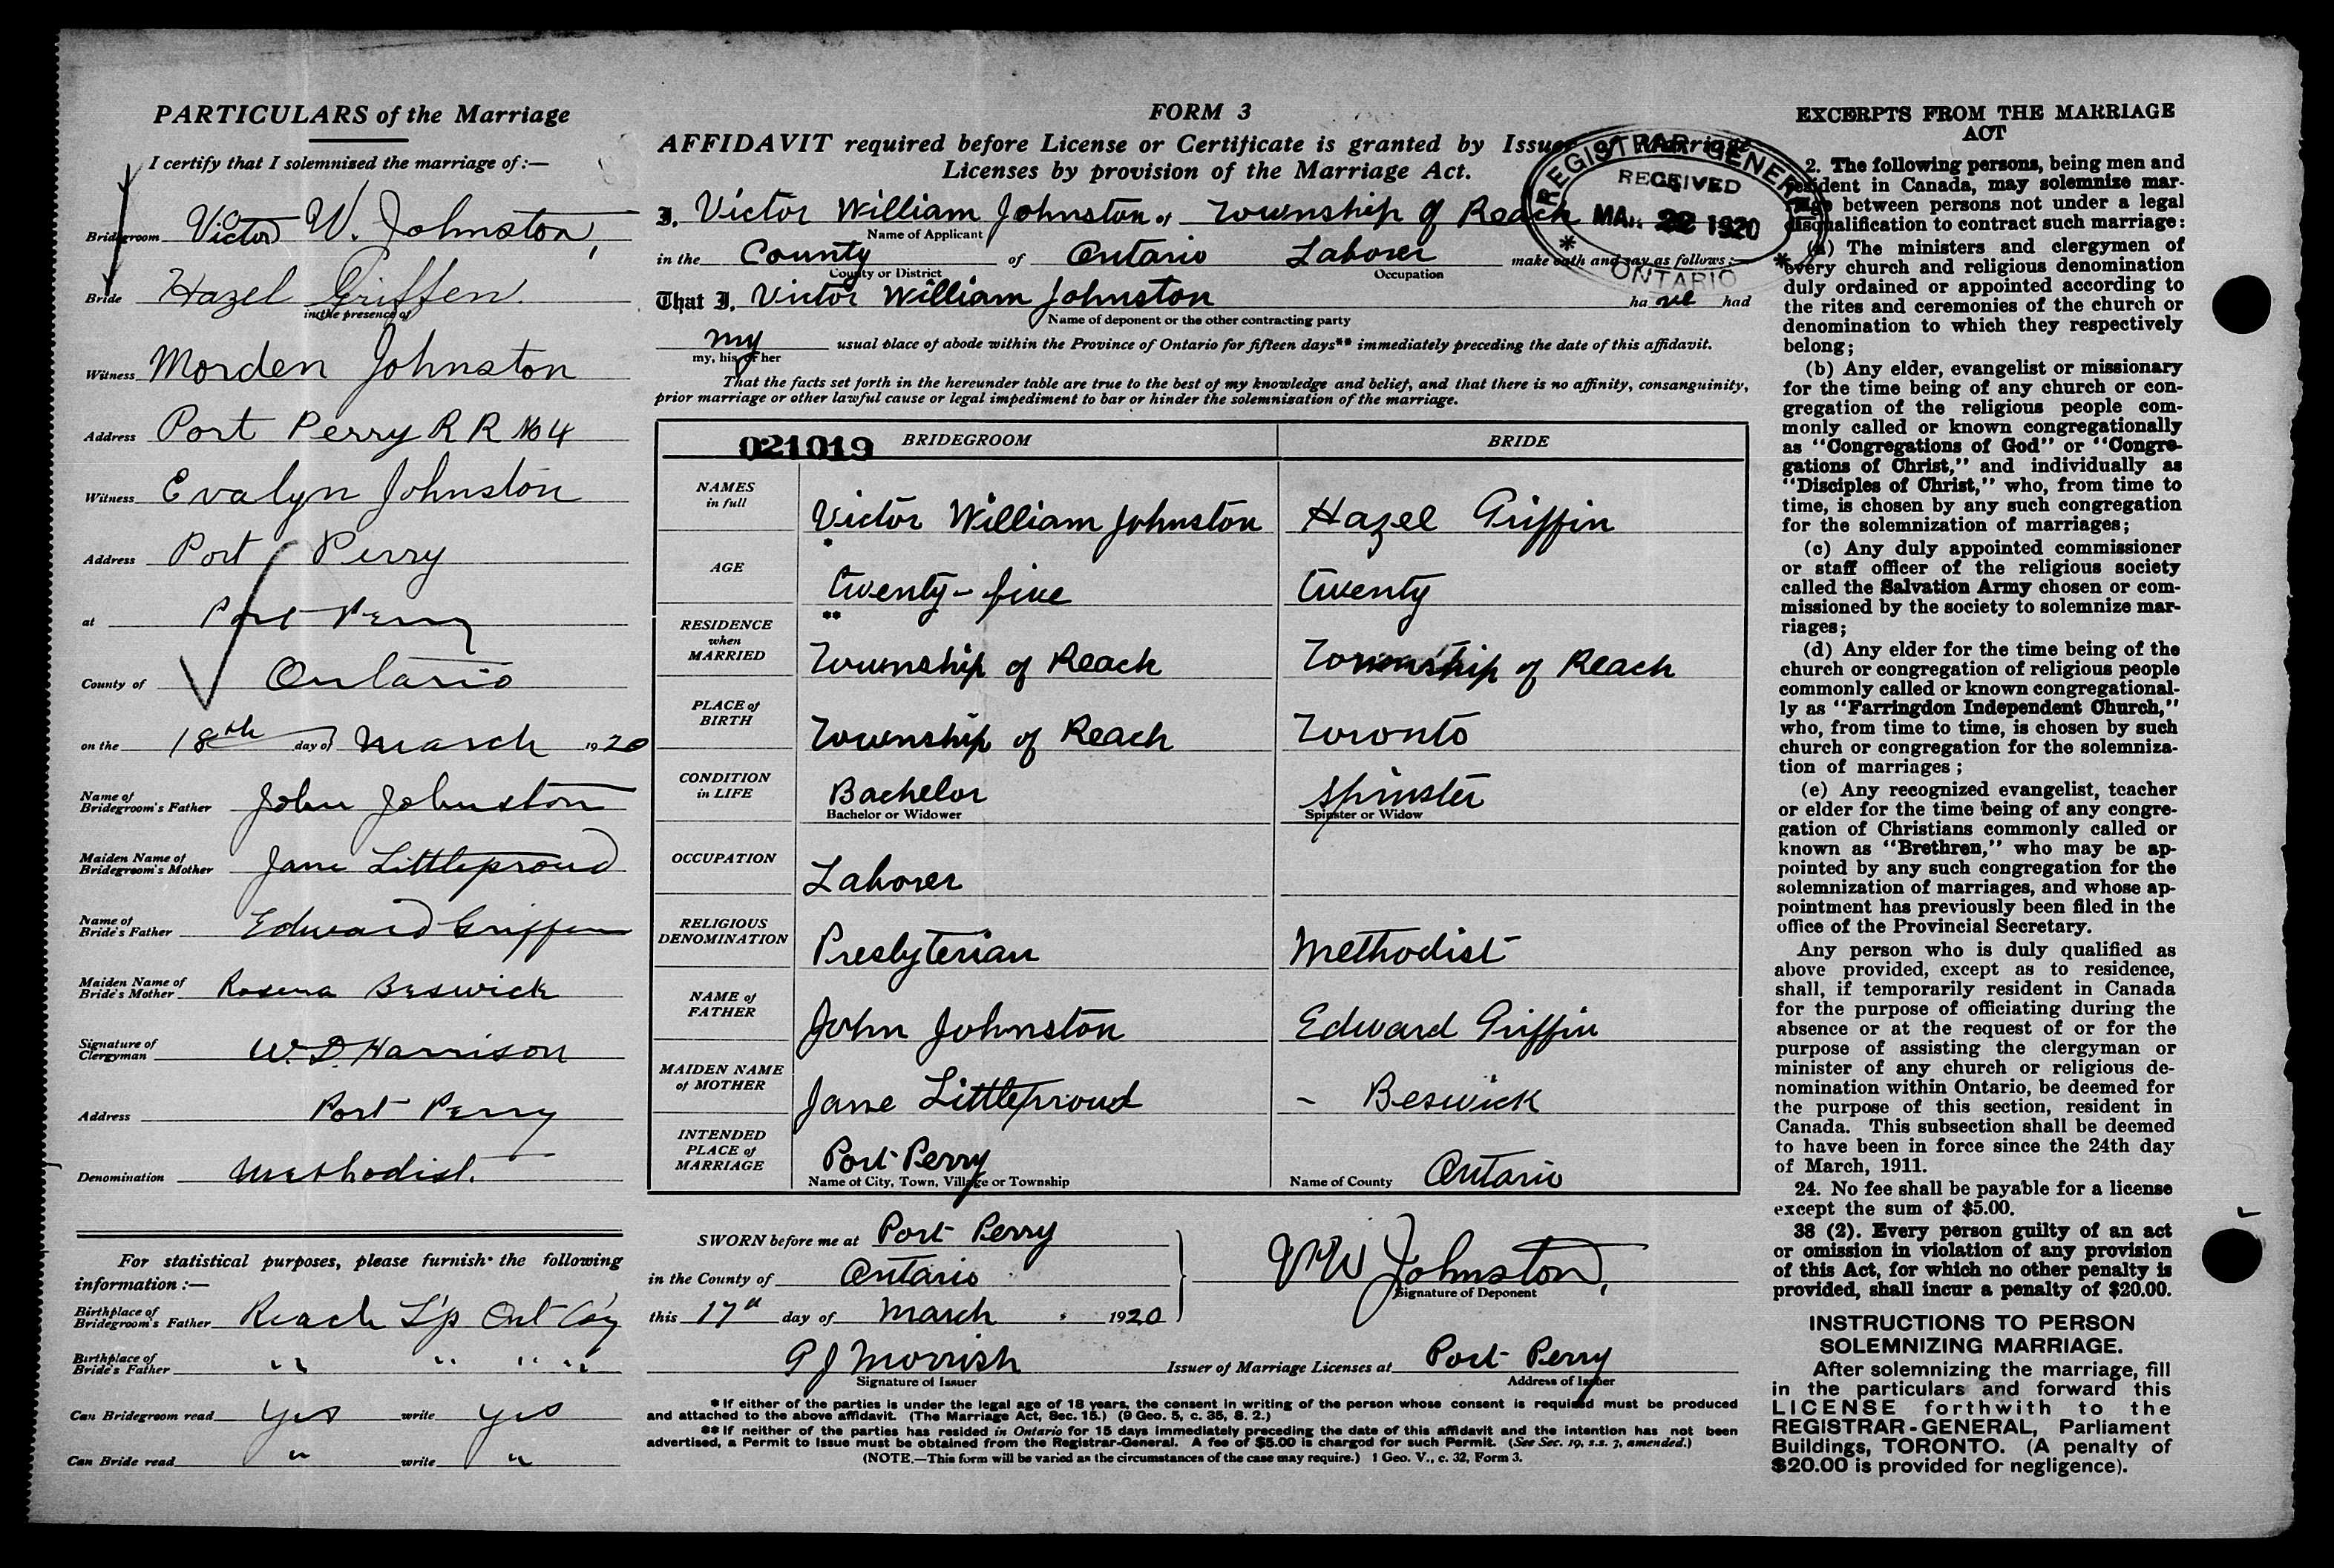 PARTICULARS of the Marriage
I certify that I solemnized the marriage of:—
Bridegroom Victor W. Johnston,
Bride Hazel Griffen.
in the presence of
Witness Morden Johnston
Address Port Perry R R No 4
Witness Evalyn Johnston
Address Port Perry
at Port Perry
County of Ontario
on the 18th day of March 1920
Name of Bridegroom's Father John Johnston
Maiden Name of Bridegroom's Mother Jane Littleproud
Name of Bride's Father Edward Griffen
Maiden Name of Bride's Mother Rosena Beswick
Signature of Clergyman W. D. Harrison
Address Port Perry
Denomination Methodist.
For statistical purposes, please furnish the following
information:—
Birthplace of Bridegroom's Father Reach T'p Ont Co'y
Birthplace of Bride's Father " " " "
Can Bridegroom read yes write yes
Can Bride read " write "
FORM 3
AFFIDAVIT required before License or Certificate is granted by Issuer of Marriage
Licenses by provision of the Marriage Act.
I, Victor William Johnston of Township of Reach
Name of Applicant
in the County of Ontario Laborer make oath and say as follows:—
County or District Occupation
That I, Victor William Johnston have had
Name of deponent or the other contracting party
my usual place of abode within the Province of Ontario for fifteen days** immediately preceding the date of this affidavit.
my, his or her
That the facts set forth in the hereunder table are true to the best of my knowledge and belief, and that there is no affinity, consanguinity,
prior marriage or other lawful cause or legal impediment to bar or hinder the solemnization of the marriage.
REGISTRAR GENERAL
RECEIVED
MAR 22 1920
* ONTARIO *
021019 BRIDEGROOM BRIDE
NAMES in full Victor William Johnston Hazel Griffin
*
AGE twenty-five twenty
**
RESIDENCE when MARRIED Township of Reach Township of Reach
PLACE of BIRTH Township of Reach Toronto
CONDITION in LIFE Bachelor Spinster
Bachelor or Widower Spinster or Widow
OCCUPATION Laborer
RELIGIOUS DENOMINATION Presbyterian Methodist
NAME of FATHER John Johnston Edward Griffin
MAIDEN NAME of MOTHER Jane Littleproud – Beswick
INTENDED PLACE of MARRIAGE Port Perry Ontario
Name of City, Town, Village or Township Name of County
SWORN before me at Port Perry
in the County of Ontario
this 17th day of March 1920
V W Johnston,
Signature of Deponent
G J Morrish Issuer of Marriage Licenses at Port Perry
Signature of Issuer Address of Issuer
* If either of the parties is under the legal age of 18 years, the consent in writing of the person whose consent is required must be produced
and attached to the above affidavit. (The Marriage Act, Sec. 15.) (9 Geo. 5, c. 35, S. 2.)
** If neither of the parties has resided in Ontario for 15 days immediately preceding the date of this affidavit and the intention has not been
advertised, a Permit to Issue must be obtained from the Registrar-General. A fee of $5.00 is charged for such Permit. (See Sec. 19, s.s. 7, amended.)
(NOTE.—This form will be varied as the circumstances of the case may require.) 1 Geo. V., c. 32, Form 3.
EXCERPTS FROM THE MARRIAGE
ACT
2. The following persons, being men and
resident in Canada, may solemnize mar-
riage between persons not under a legal
disqualification to contract such marriage:
(a) The ministers and clergymen of
every church and religious denomination
duly ordained or appointed according to
the rites and ceremonies of the church or
denomination to which they respectively
belong;
(b) Any elder, evangelist or missionary
for the time being of any church or con-
gregation of the religious people com-
monly called or known congregationally
as "Congregations of God" or "Congre-
gations of Christ," and individually as
"Disciples of Christ," who, from time to
time, is chosen by any such congregation
for the solemnization of marriages;
(c) Any duly appointed commissioner
or staff officer of the religious society
called the Salvation Army chosen or com-
missioned by the society to solemnize mar-
riages;
(d) Any elder for the time being of the
church or congregation of religious people
commonly called or known congregational-
ly as "Farringdon Independent Church,"
who, from time to time, is chosen by such
church or congregation for the solemniza-
tion of marriages;
(e) Any recognized evangelist, teacher
or elder for the time being of any congre-
gation of Christians commonly called or
known as "Brethren," who may be ap-
pointed by any such congregation for the
solemnization of marriages, and whose ap-
pointment has previously been filed in the
office of the Provincial Secretary.
Any person who is duly qualified as
above provided, except as to residence,
shall, if temporarily resident in Canada
for the purpose of officiating during the
absence or at the request of or for the
purpose of assisting the clergyman or
minister of any church or religious de-
nomination within Ontario, be deemed for
the purpose of this section, resident in
Canada. This subsection shall be deemed
to have been in force since the 24th day
of March, 1911.
24. No fee shall be payable for a license
except the sum of $5.00.
38 (2). Every person guilty of an act
or omission in violation of any provision
of this Act, for which no other penalty is
provided, shall incur a penalty of $20.00.
INSTRUCTIONS TO PERSON
SOLEMNIZING MARRIAGE.
After solemnizing the marriage, fill
in the particulars and forward this
LICENSE forthwith to the
REGISTRAR-GENERAL, Parliament
Buildings, TORONTO. (A penalty of
$20.00 is provided for negligence).